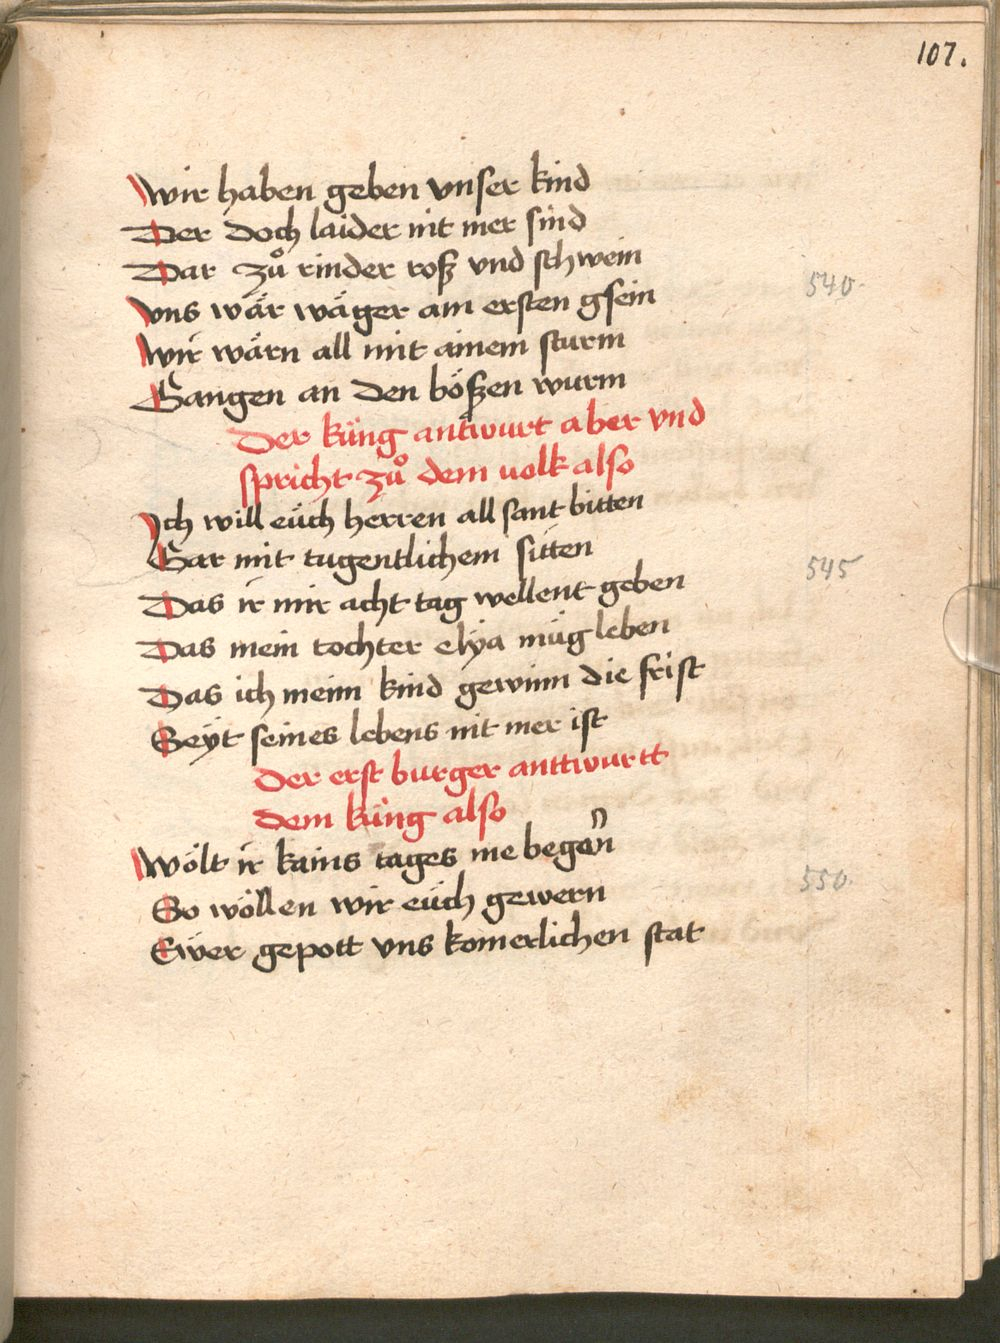 107.
Wir haben geben vnser kind
Der doch laider nit mer sind
Dar zů rinder roß vnd schwein
540.
Vns wär wäger am ersten gsein
Wir wärn all mit ainem sturm
Gangen an den bößen wurm
Der küng antwurt aber vnd
spricht zů dem volk also
Ich will eüch herren all sant bitten
Gar mit tugentlichem sitten
545
Das ir mir acht tag wellent geben
Das mein tochter elya müg leben
Das ich meim kind gewinn die frist
Seyt seines lebens nit mer ist
Der erst burger anttwurtt
dem küng also
Wölt ir kains tages me begern
550.
So wöllen wir eüch gewern
Ewer gepott vns komerlichen stat